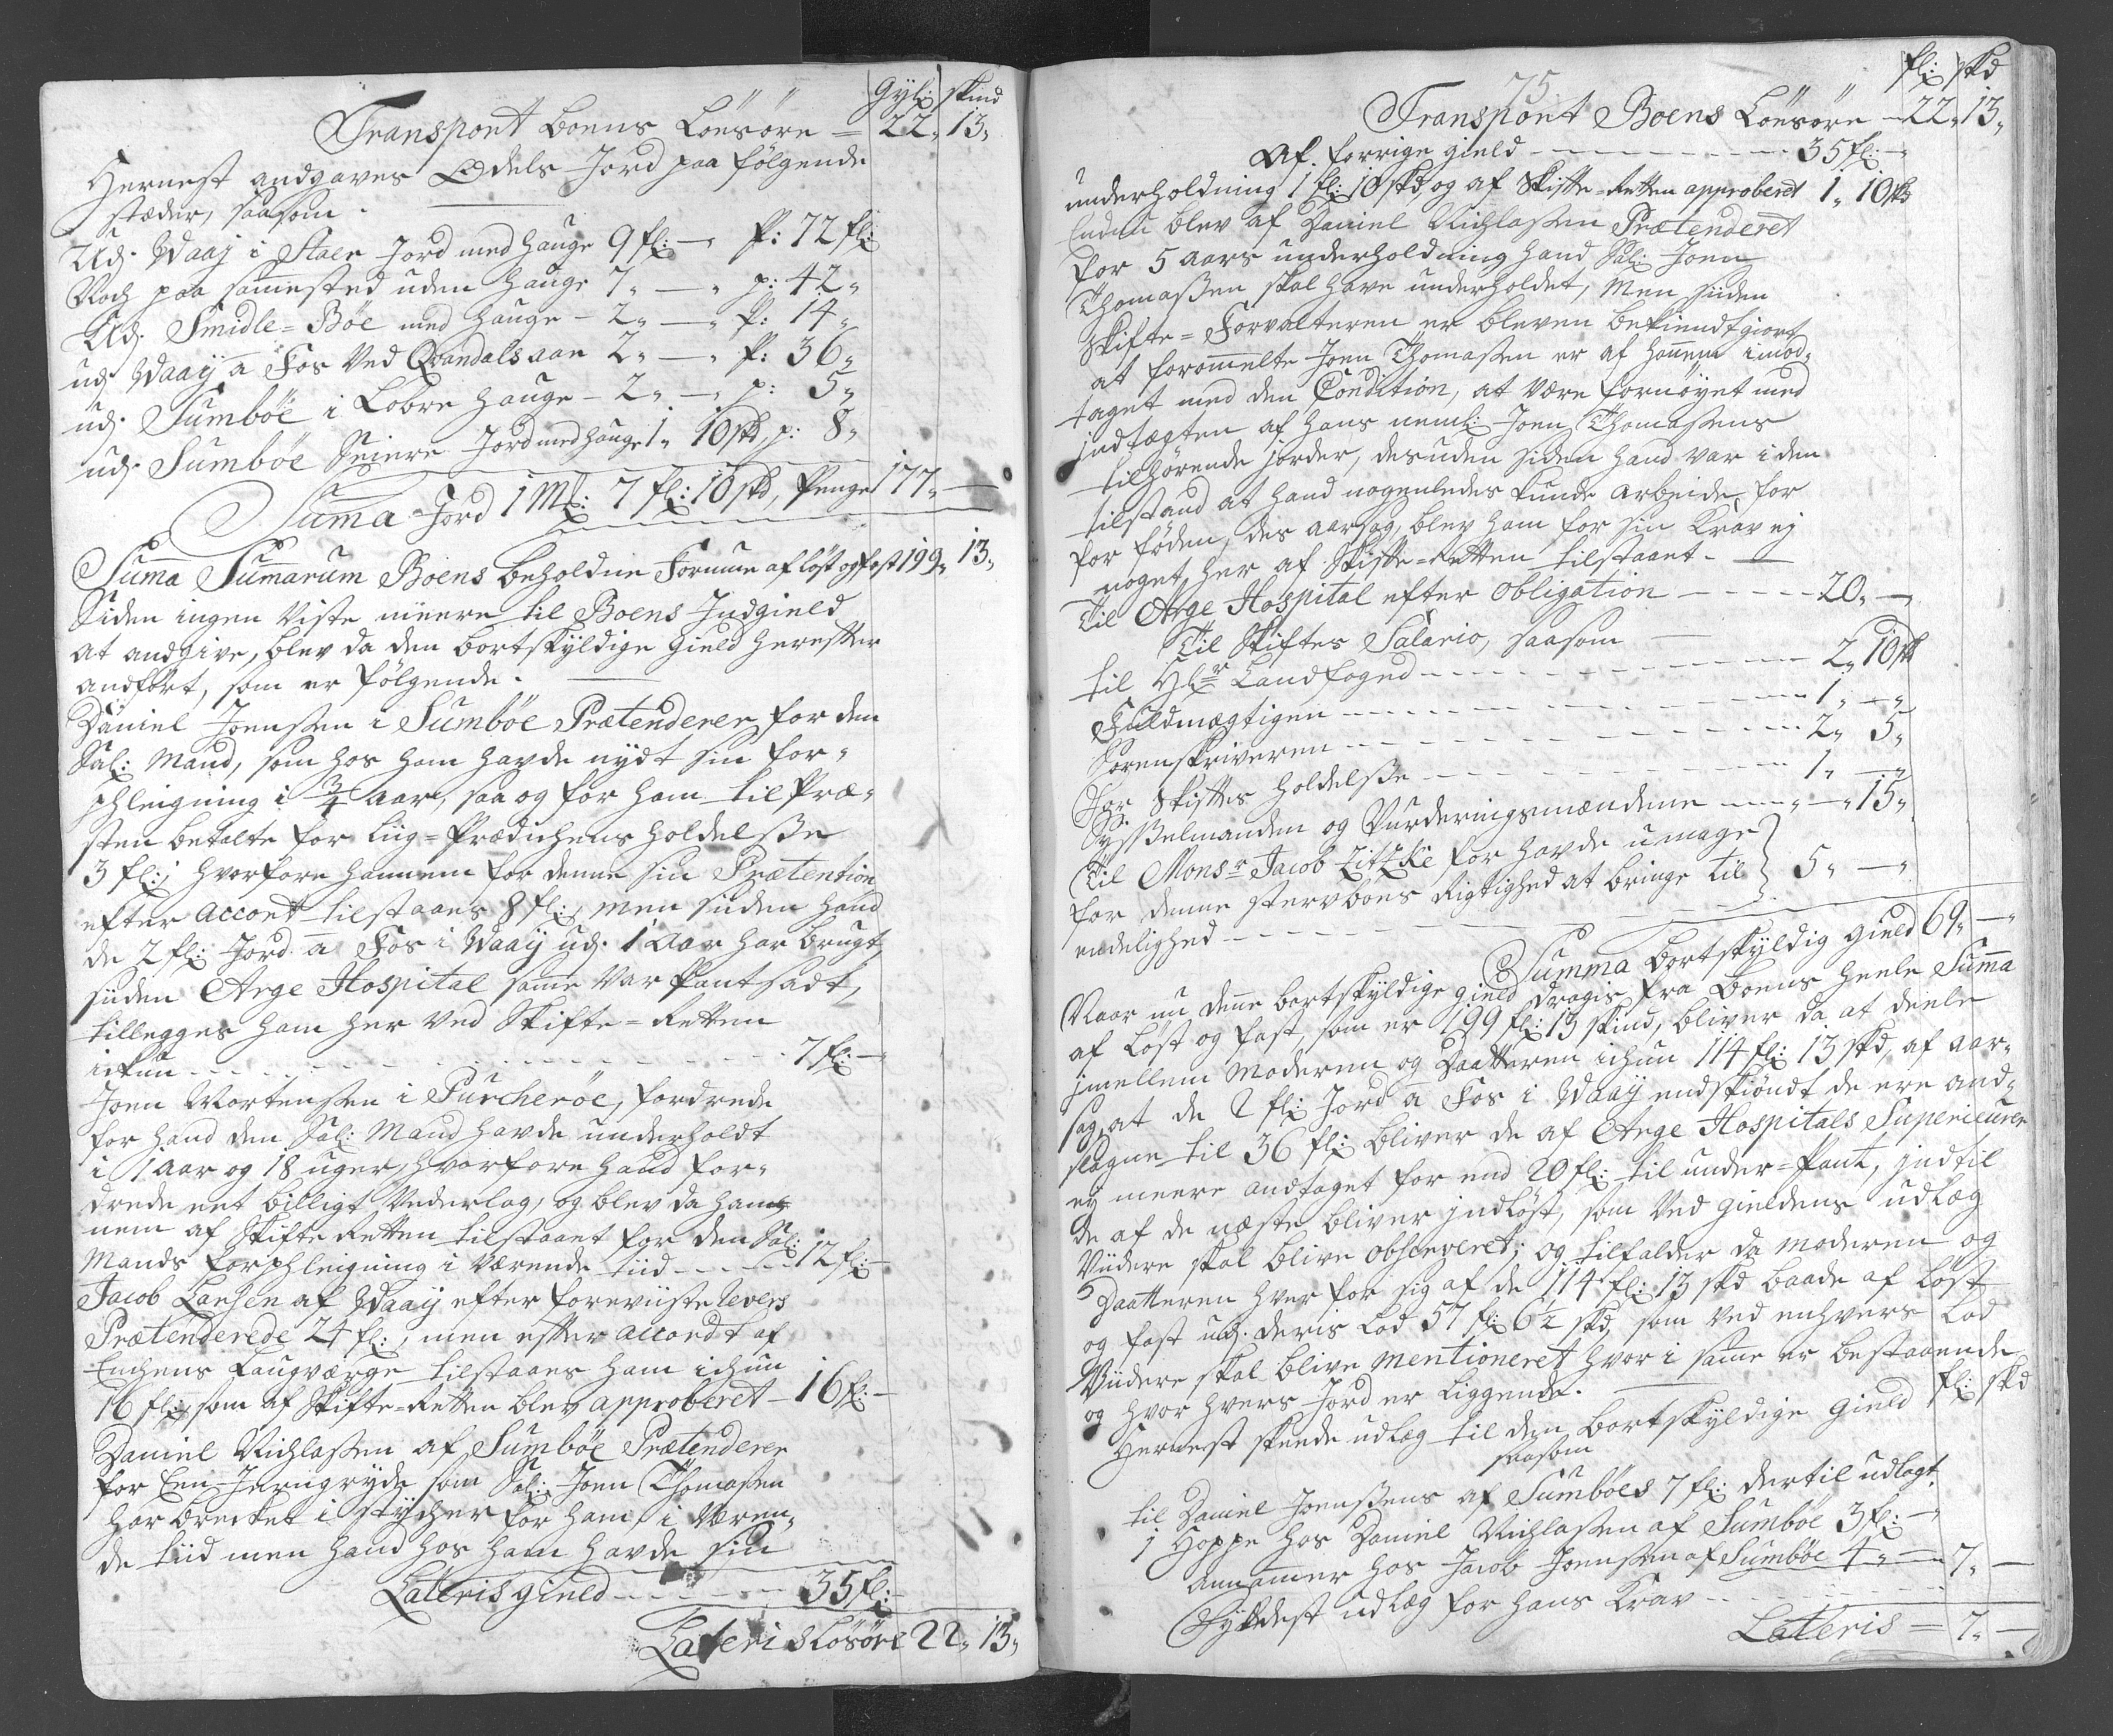 Gyl: skind
Transport Boens Löesöre = 22„ 13„
Hernest andgaves Odels Jord paa følgende
stæder, saasom.
Udj. Waaj i Staer Jord med hauge 9 fl: — „ p: 72 fl:
Noch paa sammested uden hauge 7„ — „ p: 42„
Udj. Smidle=Böe med hauge - 2„ — „ p: 14„
udj Waaij a Fos ved Qvandals aaen 2„ — „ p: 36„
udj. Sumböe i Lobre hauge - 2„ — „ p: 5„
udj. Sumböe Jord med hauge 1„ 10 skd, p: 8„
Summa Jord 1 M: 7 fl: 10 skd, Penge 177„ —
Suma Sumarum Boens beholdne Formue af löst og fast 199„ 13„
Siden ingen viste meere til Boens Indgield
at andgive, blev da den bortskyldige gield herefter
andfört, som er følgende.
Daniel Joensen i Sumböe Prætenderer for den
Sal: Mand, som hos ham havde nydt sin for=
phleigning i 3/4 aar, saa og for ham til Præ=
sten betalte for Liig=Prædichens holdelsse
3 fl:, hvorfore hannem for denne sin Prætention
efter accort tilstaaes 8 fl:, men siiden hand
de 2 fl: Jord a Fos i Waaij udj. 1 aar har brugt,
siiden Arge Hospital same var Pantsadt,
tillegges ham her ved Skifte=Retten
ickun - - - 7 fl: —
Joen Mortensen i Purcheröe, fordrede
for hand den Sal: Mand havde underholdt
i 1 aar og 18 uger, hvorfore hand for=
drede eet billigt Vederlag, og blev da han=
nem af Skifte Retten tilstaaet for den Sal:
Mands forphleigning i værende tiid - - - 12 fl: -
Jacob Larsen af Waaij efter foreviiste Revers
Prætenderede 24 fl:, men efter accordt af
Enchens Laugværge tilstaaes ham ichun
16 fl:, som af Skifte=Retten blev approberet - 16 fl: -
Daniel Nichlassen af Sumböe Prætenderer
for Een Jerngryde som Sal: Joen Thomassen
har brecket i stÿcher for ham, i Væren=
de tiid men hand hos ham havde sin
Lateris gield - - - 35 fl: -
Lateris Lösöre 22„ 13„
75.
fl: skd
Transport Boens Löesöre — 22„ 13„
Af. forrige gield - - - 35 fl: - „
underholdning 1 fl: 10 skd, og af Skifte=Retten approberet 1„ 10 skd
Endnu blev af Daniel Nichlassen Prætenderet
for 5 aars underholdning hand Sal: Joen
Thomassen skal have underholdet, Men siiden
Skifte=Forvalteren er bleven bekiendtgiort
at forommelte Joen Thomassen er af hannem imod=
taget med den Condition, at være fornöyet med
indtægten af hans neml: Joen Thomassens
tilhørende jorder, desuden siden hand var i den
tilstand at hand nogenledes kunde arbeide for
for føden, des aarsag, blev ham for sin Krav ej
noget her af Skifte=Retten tilstaaet. —
Til Arge Hospital efter obligation - - - 20„ —
Til Skiftes Salario, saasom —
til Hr Landfoged - - - 2„ 10 skd
Fuldmægtigen - - - 1„ — „
Sorenskriveren - - - 2„ 5„
For Skiftes holdelsse - - - 1„ — „
Sysselmanden og Vurderingsmændene - - - „ — „ 15„
Til Monsr Jacob Zitzke for havde umage
for denne stervboes Rigtighed at bringe til } 5„ — „
endelighed - - -
Summa bortskyldig gield 69„ — „
Naar nu denne bortskyldige gield dragis fra boens heele Suma
af löst og fast, som er 199 fl: 13 skind, bliver da at deele
jmellem Moderen og Daatteren ichun 114 fl: 13 skd, af aar=
sag, at de 2 fl: Jord a Fos i Waaij endskiöndt de ere and=
slagne til 36 fl: bliver de af Arge Hospitals Superieurer
ey meere andtaget for end 20 fl: til under=Pant, indtil
de af de næste bliver indlöst, som ved gieldens udlæg
Viidere skal blive observeret; og tilfalder da Moderen og
Daatteren hver for sig af de 114 fl: 13 skd baade af löst
og fast udj. deris Lod 57 fl: 6½ skd, som ved enhvers Lod
Viidere skal blive mentioneret hvori same er bestaaende
og hvor hvers Jord er liggende. —
Hernest skeede udlæg til den bortskyldige gield fl: skd
saasom
til Daniel Joensens af Sumböes 7 fl: dertil udlagt.
1 Hoppe hos Daniel Nichlassen af Sumböe 3 fl: - „
hos Jacob Joensen af Sumböe 4„ — „ 7„ —
Fyldest udlæg for hans Krav - - -
Lateris = 7„ —